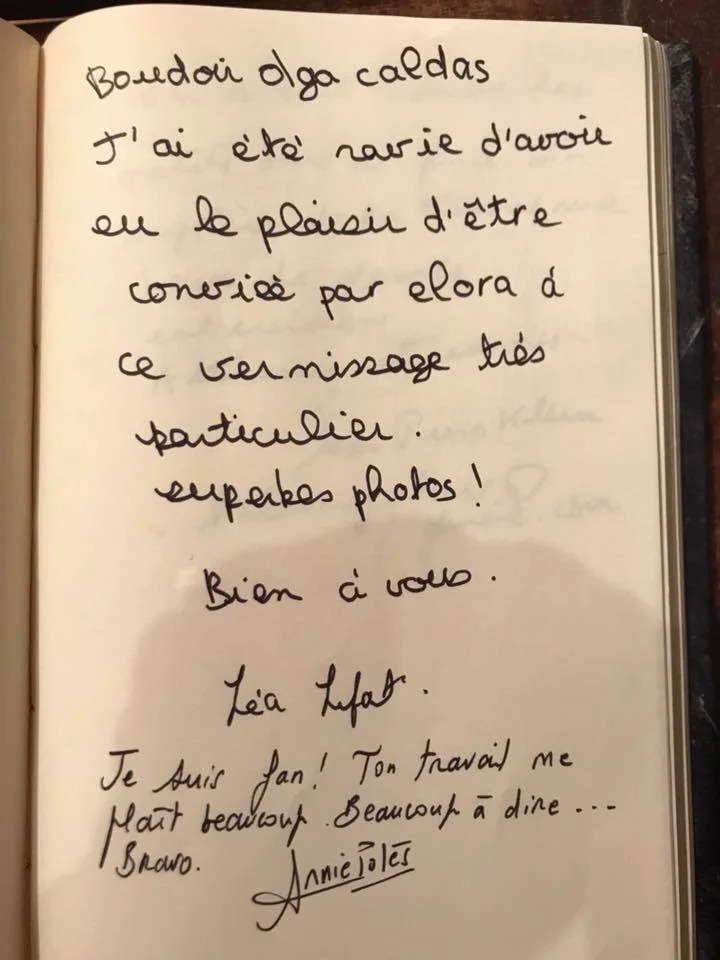 Boudoir olga caldas
J'ai été ravie d'avoir
eu le plaisir d'être
conviée par elora à
ce vernissage très
particulier.
superbes photos !
Bien à vous.
Léa
Je suis fan ! Ton travail me
plaît beaucoup. Beaucoup à dire ...
Bravo. Annie